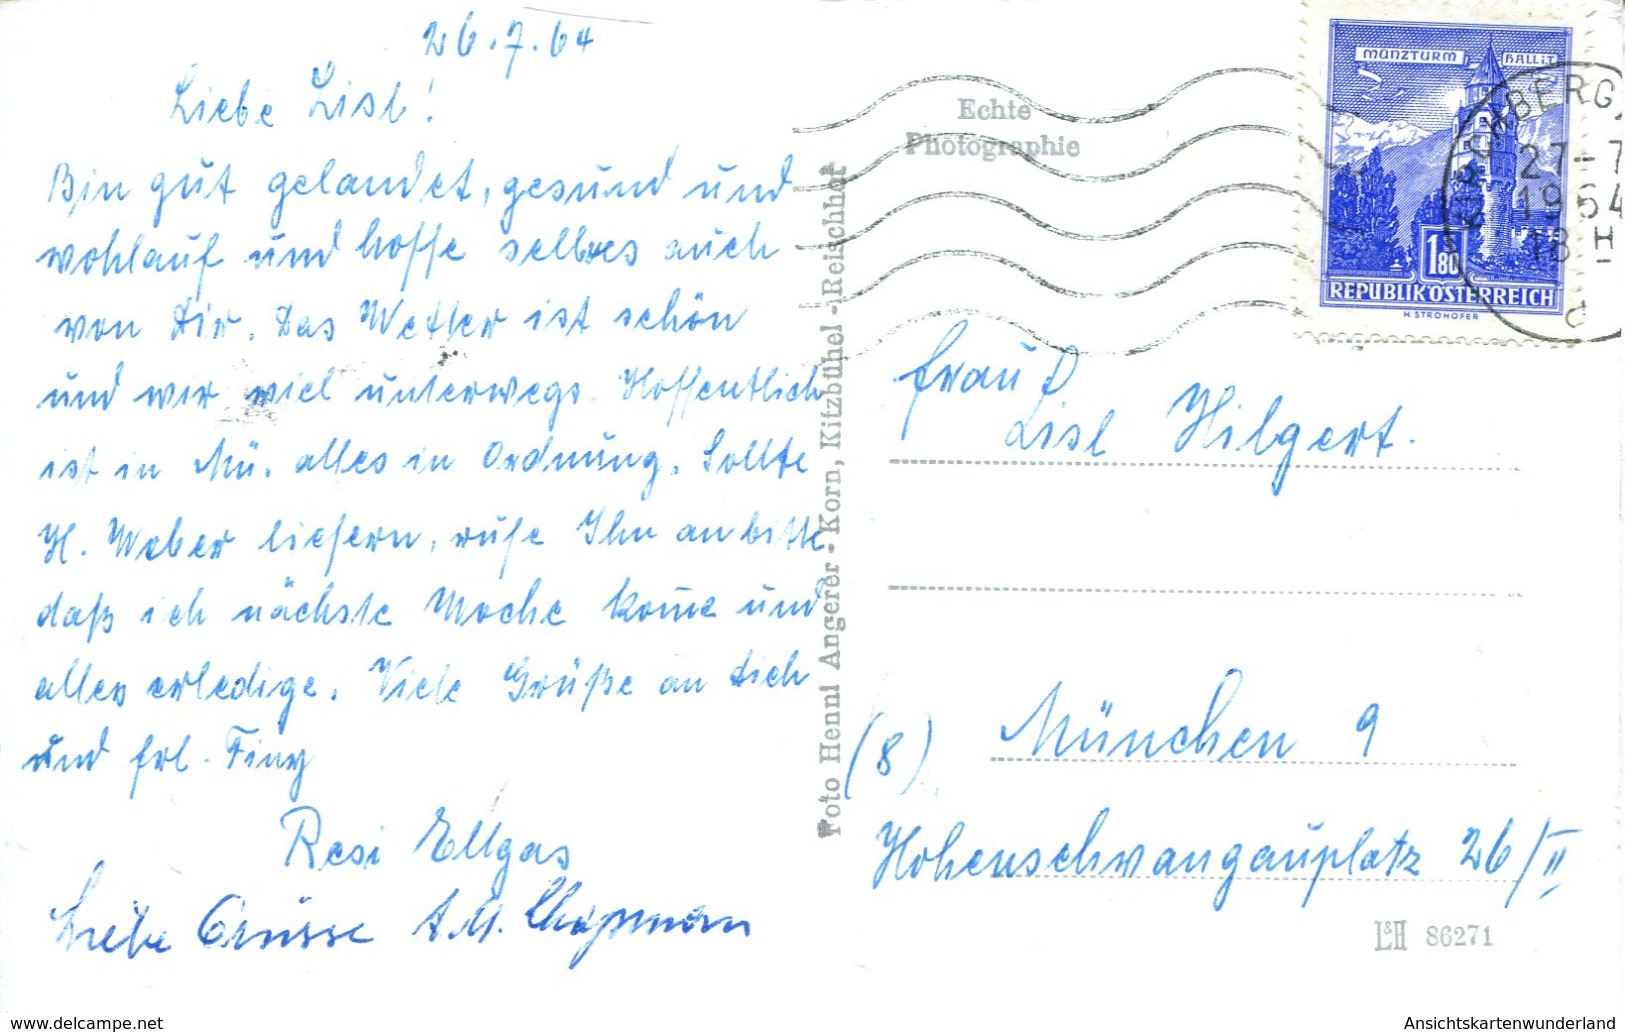 26.7.64
Liebe Lisl!
Bin gut gelandet, gesund und
wohlauf und hoffe selbes auch
von Dir. Das Wetter ist schön
und wir viel unterwegs. Hoffentlich
ist in Mü. alles in Ordnung. Sollte
H. Weber liefern, rufe Ihn an bitte
daß ich nächste Woche kome und
alles erledige. Viele Grüße an Dich
und Frl. Finy
Resi Ellgas
Liebe Grüsse A.M. Chapman
Echte
Photographie
Foto Henni Angerer - Korn, Kitzbühel - Reischhof
MÜNZTURM HALL i T
1.80
REPUBLIK ÖSTERREICH
H. STROHOFER
KIRCHBERG,
27-7
1964
18 H
d
Frau
Lisl Hilgert.
(8) München 9
Hohenschwangauplatz 26/II
L&H 86271
www.delcampe.net
Ansichtskartenwunderland